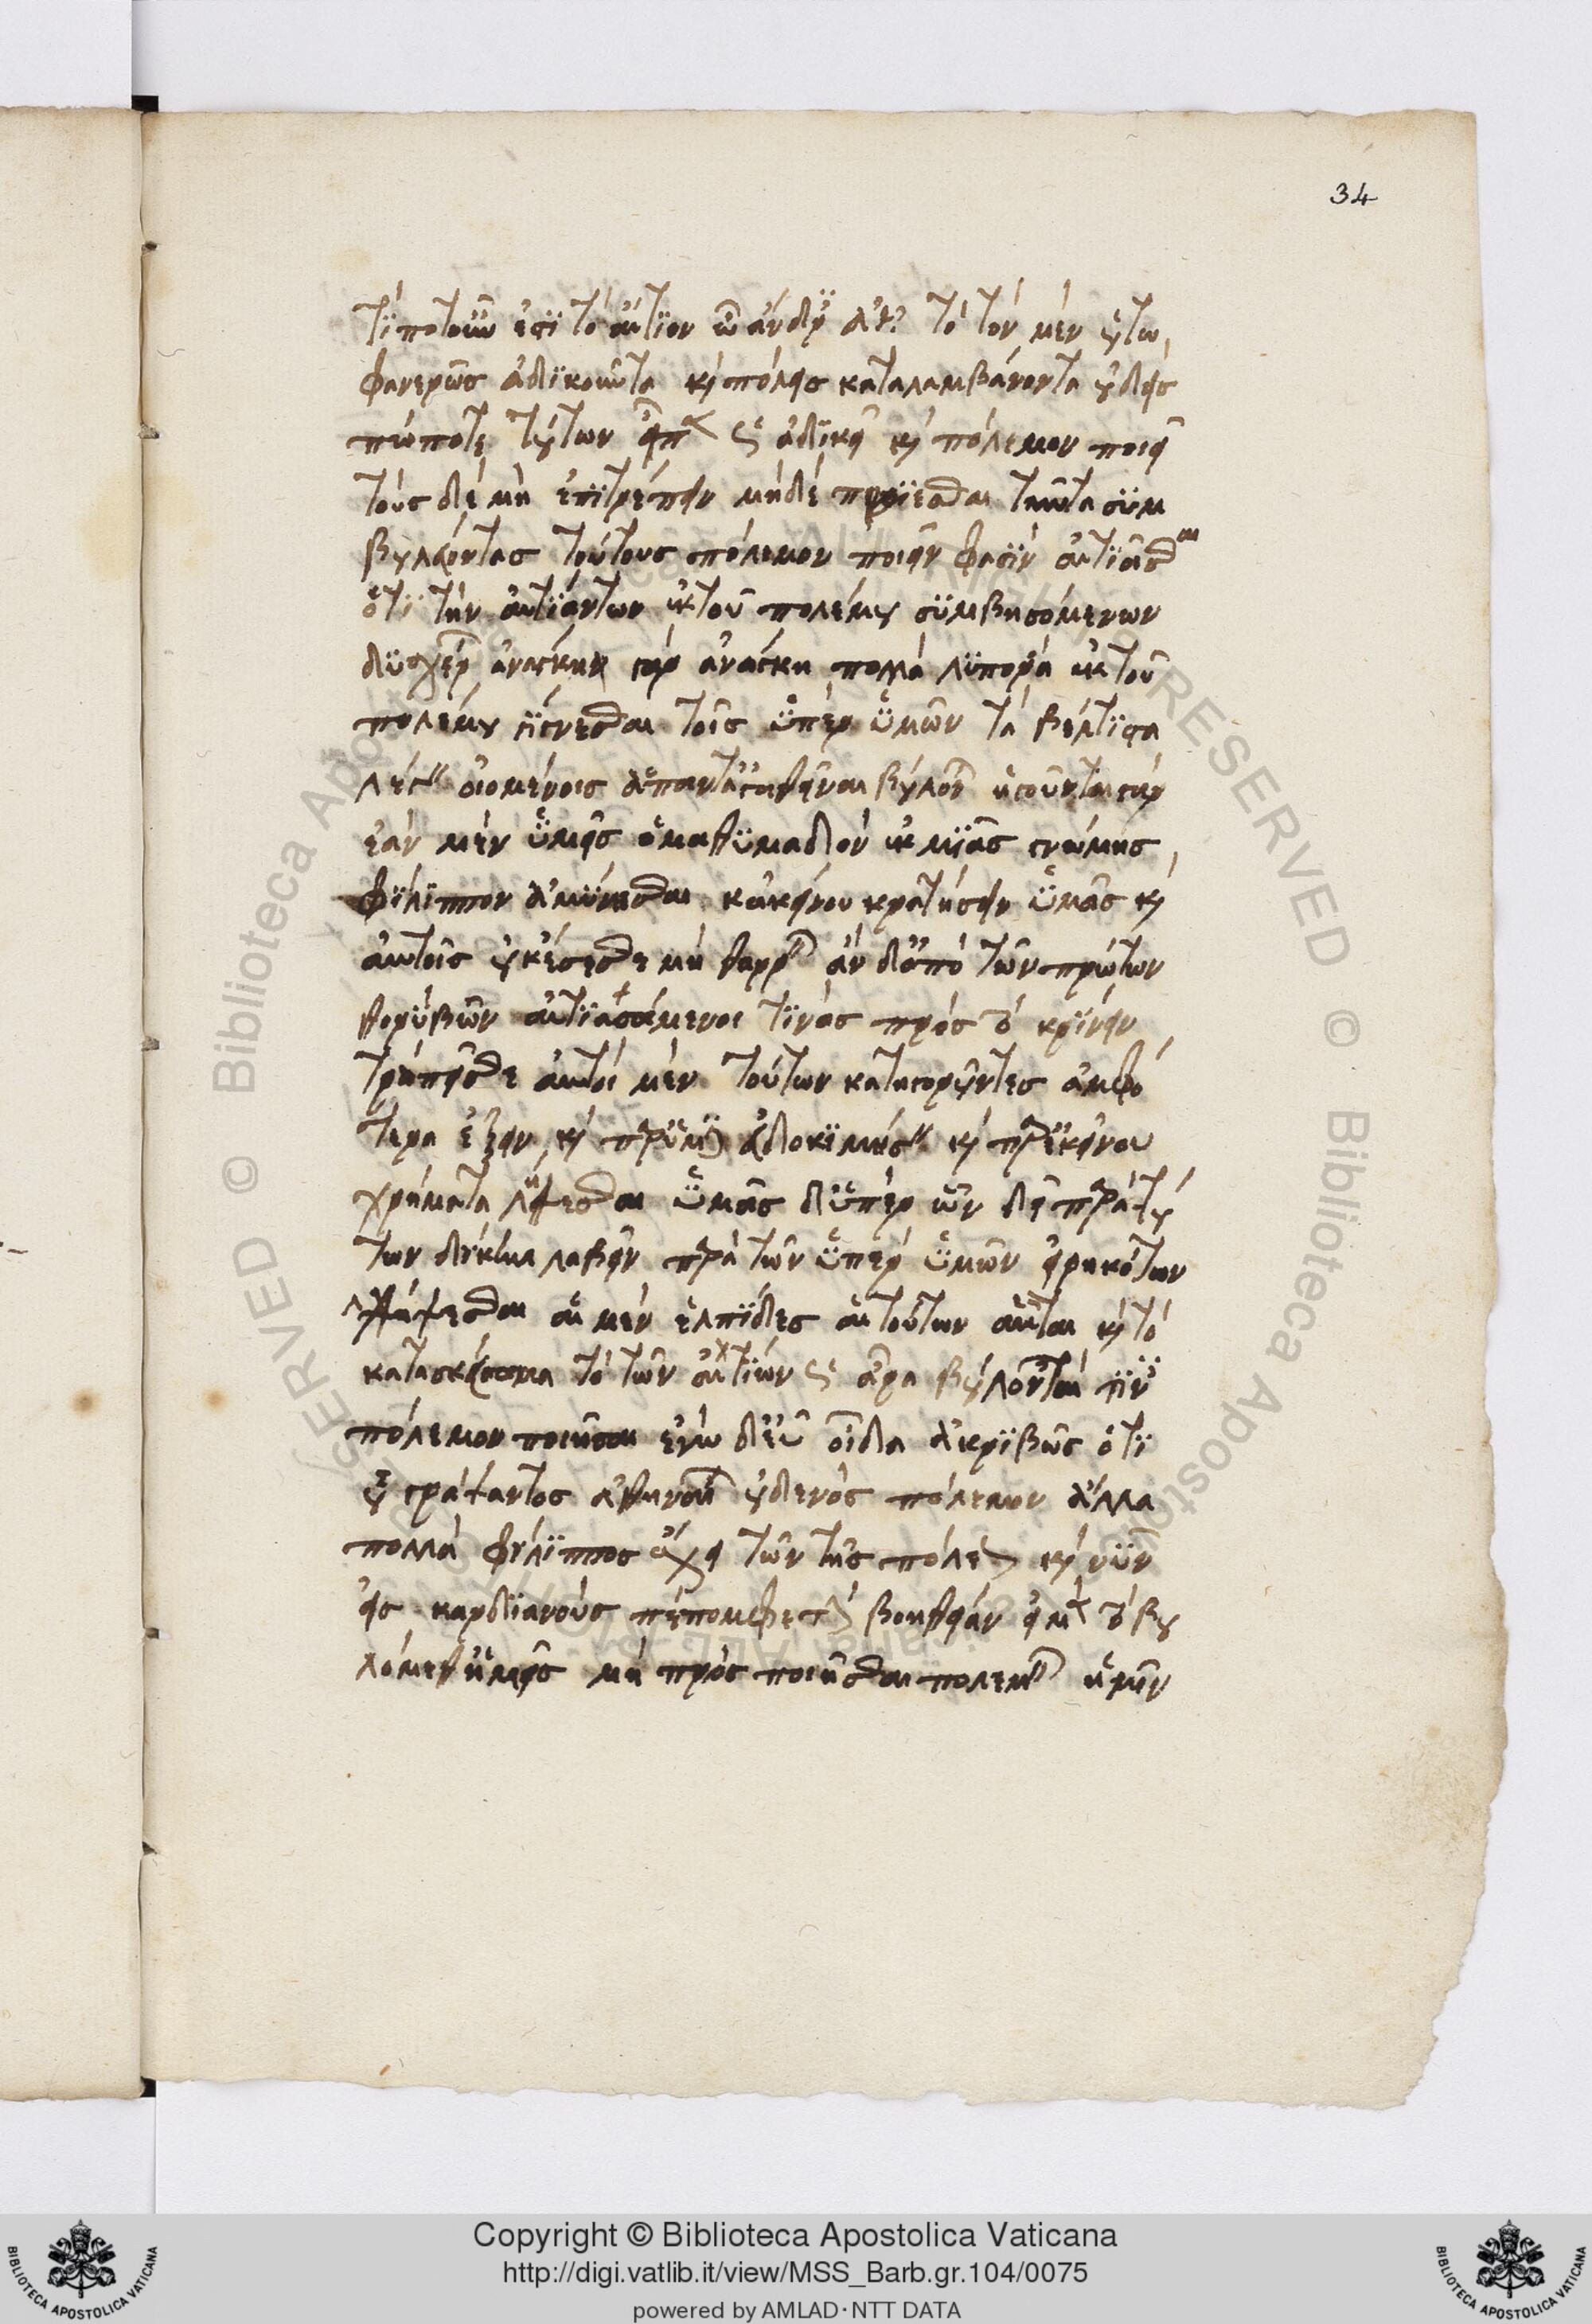 34
τί ποτ' οὖν ἐστὶ τὸ αἴτιον ὦ ἄνδρες ἀθηναῖοι τὸ τὸν μὲν οὕτω,
φανερῶς ἀδικοῦντα καὶ πόλεις καταλαμβάνοντα οὐδεὶς
πώποτε τούτων εἶπεν ὡς ἀδικεῖ καὶ πόλεμον ποιεῖ
τοὺς δὲ μὴ ἐπιτρέπειν μηδὲ προΐεσθαι ταῦτα συμ
βουλεύοντας τούτους πόλεμον ποιεῖν φασὶν αἰτιᾶσθαι
ὅτι τὴν αἰτίαν τῶν ἐκ τοῦ πολέμου συμβησομένων
δυσχερῶν ἀνάγκη γὰρ ἀνάγκη πολλὰ λυπηρὰ ἐκ τοῦ
πολέμου γίγνεσθαι τοῖς ὑπὲρ ὑμῶν τὰ βέλτιστα
λέγειν οἰομένοις ἅπαντ' ἀναθεῖναι βούλονται ἡγοῦνται γὰρ
ἐὰν μὲν ὑμεῖς ὁμοθυμαδὸν ἐκ μιᾶς γνώμης,
φίλιππον ἀμύνησθαι κἀκείνου κρατήσειν ὑμᾶς καὶ
αὐτοῖς οὐκέσεσθε μισθαρνεῖν ἂν δ' ἀπὸ τῶν πρώτων
θορύβων αἰτιασάμενοι τινὰς πρὸς τὸ κρίνειν
τράπησθε αὐτοὶ μὲν τούτων κατηγοροῦντες ἀμφό
τερα ἕξειν, καὶ παρ' ὑμῖν εὐδοκιμήσειν καὶ παρ' ἐκείνου
χρήματα λήψεσθαι ὑμᾶς δ' ὑπὲρ ὧν δεῖ παρὰ τού
των δίκην λαβεῖν παρὰ τῶν ὑπὲρ ὑμῶν εἰρηκότων
λήψεσθαι αἱ μὲν ἐλπίδες αἱ τούτων αὗται καὶ τὸ
κατασκεύασμα τὸ τῶν αἰτιῶν ὡς ἄρα βούλονταί τινες
πόλεμον ποιῆσαι ἐγὼ δ' εὖ οἶδα ἀκριβῶς ὅτι
οὐ γράψαντος ἀθηναίων οὐδενὸς πόλεμον ἄλλα
πολλὰ φίλιππος ἔχει τῶν τῆς πόλεως καὶ νῦν
εἰς καρδιανοὺς πέπομφε βοήθειαν εἰ μέντοι βου
λόμεθ' ἡμεῖς μὴ προσποιεῖσθαι πολεμεῖν ἡμῖν
Copyright © Biblioteca Apostolica Vaticana
http://digi.vatlib.it/view/MSS_Barb.gr.104/0075
powered by AMLAD·NTT DATA